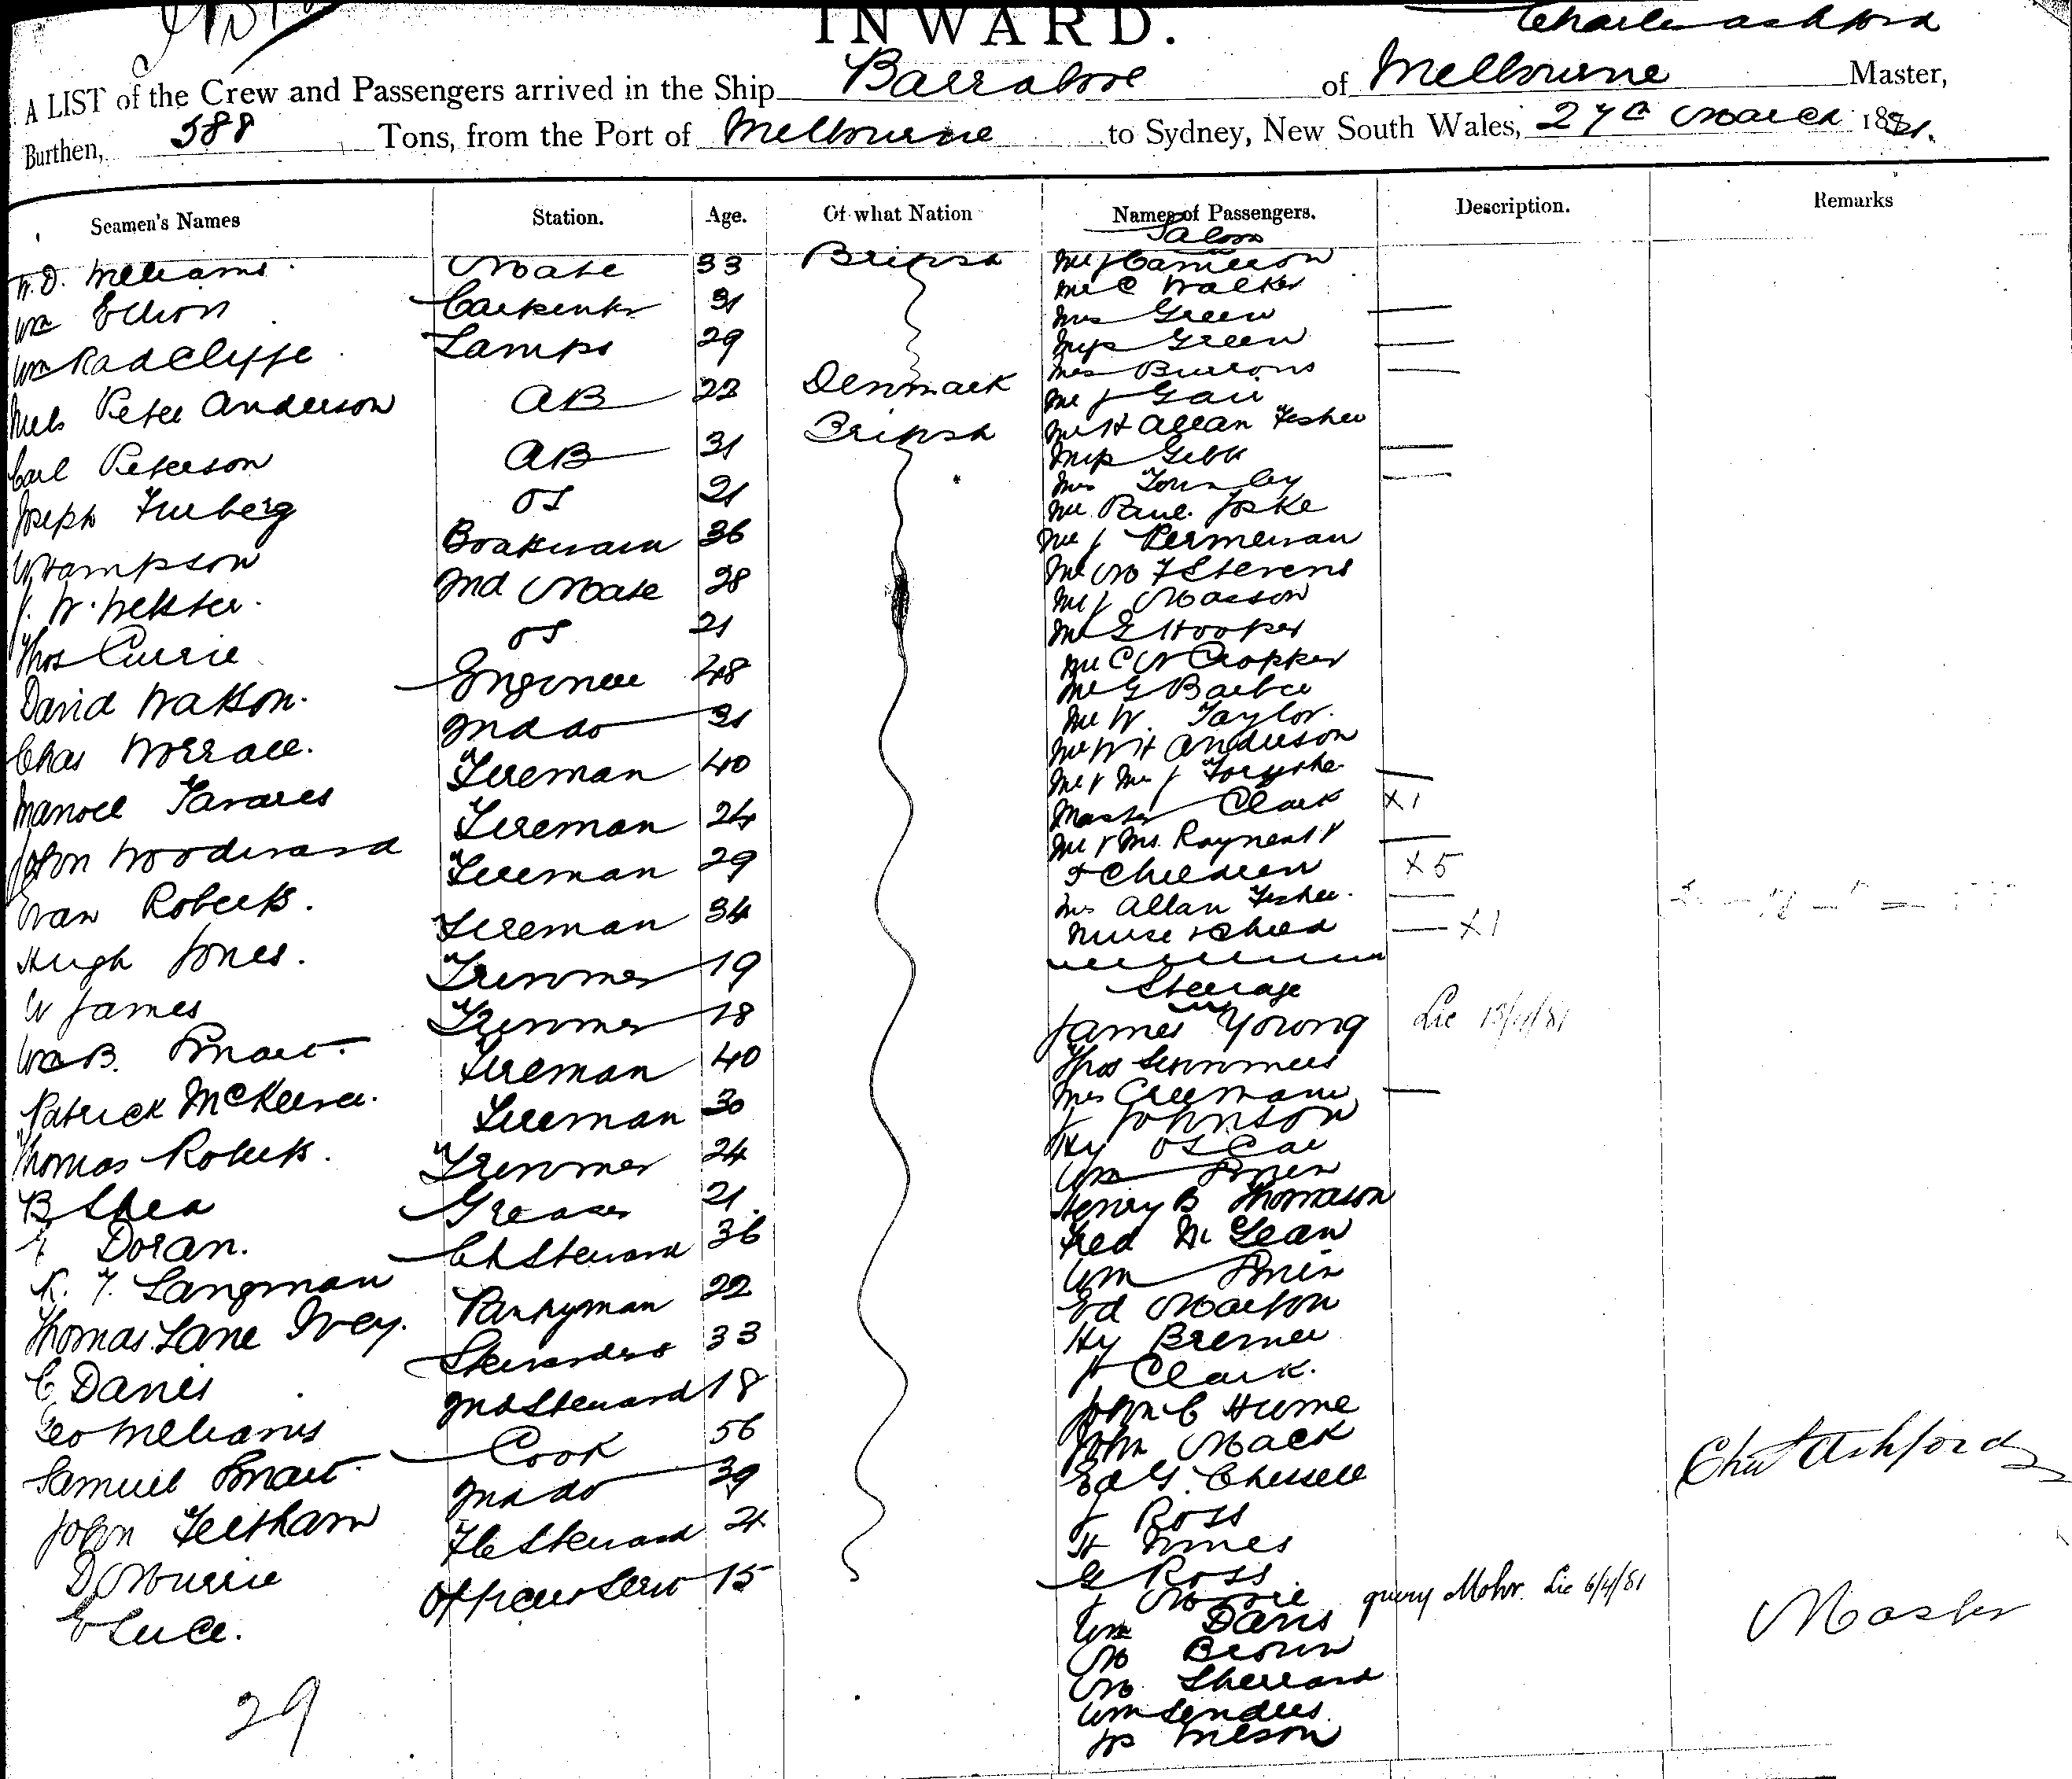 INWARD.
Charles Ashford
A LIST of the Crew and Passengers arrived in the Ship Barrabool of Melbourne Master,
Burthen, 388 Tons, from the Port of Melbourne to Sydney, New South Wales, 27th March 1881.
Seamen's Names Station. Age. Of what Nation Names of Passengers. Description. Remarks
Saloon
W. D. Williams Mate 33 British Mr J Cameron
Wm Elliott Carpenter 31 Mr C Walker
Mrs Green
Wm Radclyffe Lamps 29 Miss Green
Mrs Burrows
Niels Peter Anderson AB 22 Denmark Mr J Gair
Mr H Allan Fisher
Carl Peterson AB 31 British Miss Gibb
Mrs Townley
Joseph Freeberg OS 21 Mr Paul Joske
W Sampson Boatswain 36 Mr J Permewan
Mr M F Stevens
J. W. Webster 2nd Mate 28 Mr J Masson
Thos Currie OS 21 Mr G Hooper
Mr C W Cropper
David Watson. Engineer 48 Mr G Barber
Mr W. Taylor.
Chas Worrall. 2nd do 31 Mr W H Anderson
Manoel Tavares Fireman 40 Mr & Mrs J Forsythe
Master Clark X1
John Woodward Fireman 24 Mr & Mrs Raynent &
Evan Roberts. Fireman 29 5 Children X5
Mrs Allan Fisher.
Hugh Jones. Fireman 34 Nurse & Child X1
W James Trimmer 19 Steerage
Wm B. Smart. Trimmer 18 James Young Lic 13/4/81
Patrick McKeever. Fireman 40 Thos Simmers
Mrs Creemans
Thomas Roberts. Fireman 30 J Johnson
B Shea Trimmer 24 Hy Oscar
Wm Smith
Doran. Greaser 21 Henry B Thomason
K. F. Langman Ch Steward 36 Fred McLean
Wm Smith
Thomas Lane Ivey. Pantryman 22 Ed Marton
C Davies Stewardess 33 Hy Bremer
J Clark.
Geo Williams 2nd Steward 18 John C Hume
Samuel Smart. Cook 56 John Mack
John Feltham 2nd do 39 Ed G. Chessell
J Ross
D Murrie F C Steward 21 H Innes
E Luce. Officers Servt 15 G Ross
J query Mohr. Lic 6/4/81
Wm Davis
M Brown
M Sherrard
Wm Senders
Js Wilson
29
Chas Ashford
Master